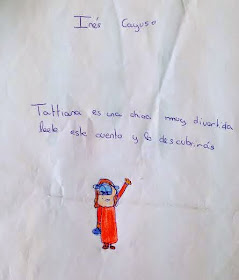 Inés Cayuso
Tattiana es una chica muy divertida
leete este cuento y lo descubrirás